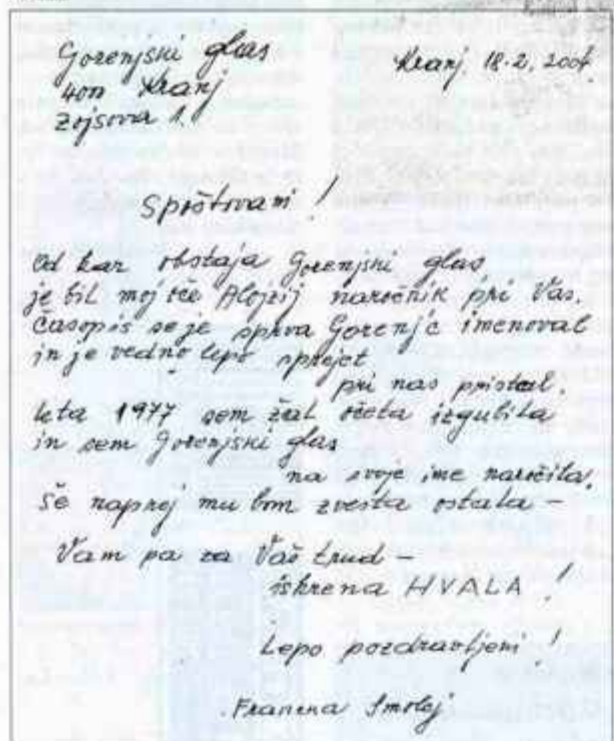 Gorenjski glas
Kranj, 18.2.2004
4001 Kranj
Zojsova 1.
Spoštovani!
Od kar obstaja Gorenjski glas,
je bil moj oče Alojzij naročnik pri Vas.
Časopis se je sprva Gorenjc imenoval
in je vedno lepo sprejet
pri nas pristal.
Leta 1977 sem žal očeta izgubila
in sem Gorenjski glas
na svoje ime naročila.
Še naprej mu bom zvesta ostala –
Vam pa za Vaš trud –
iskrena HVALA!
Lepo pozdravljeni!
Smolej